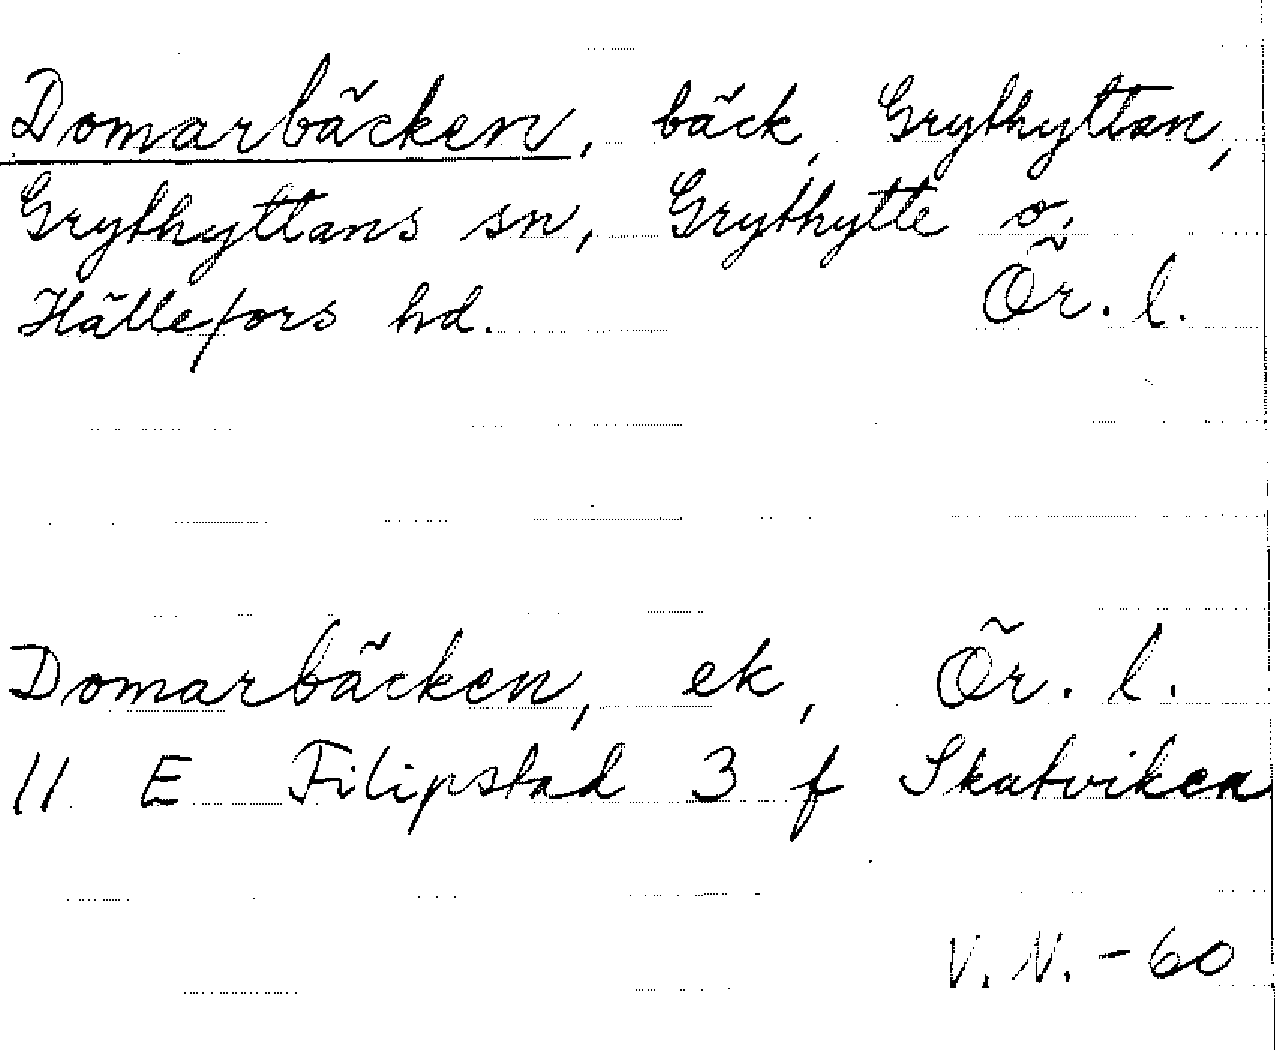 Domarbäcken, bäck, Grythyttan,
Grythyttans sn, Grythytte o.
Hällefors hd. Ör. l.
Domarbäcken, ek, Ör. l.
11 E Filipstad 3 f Skatviken
V. N. -60